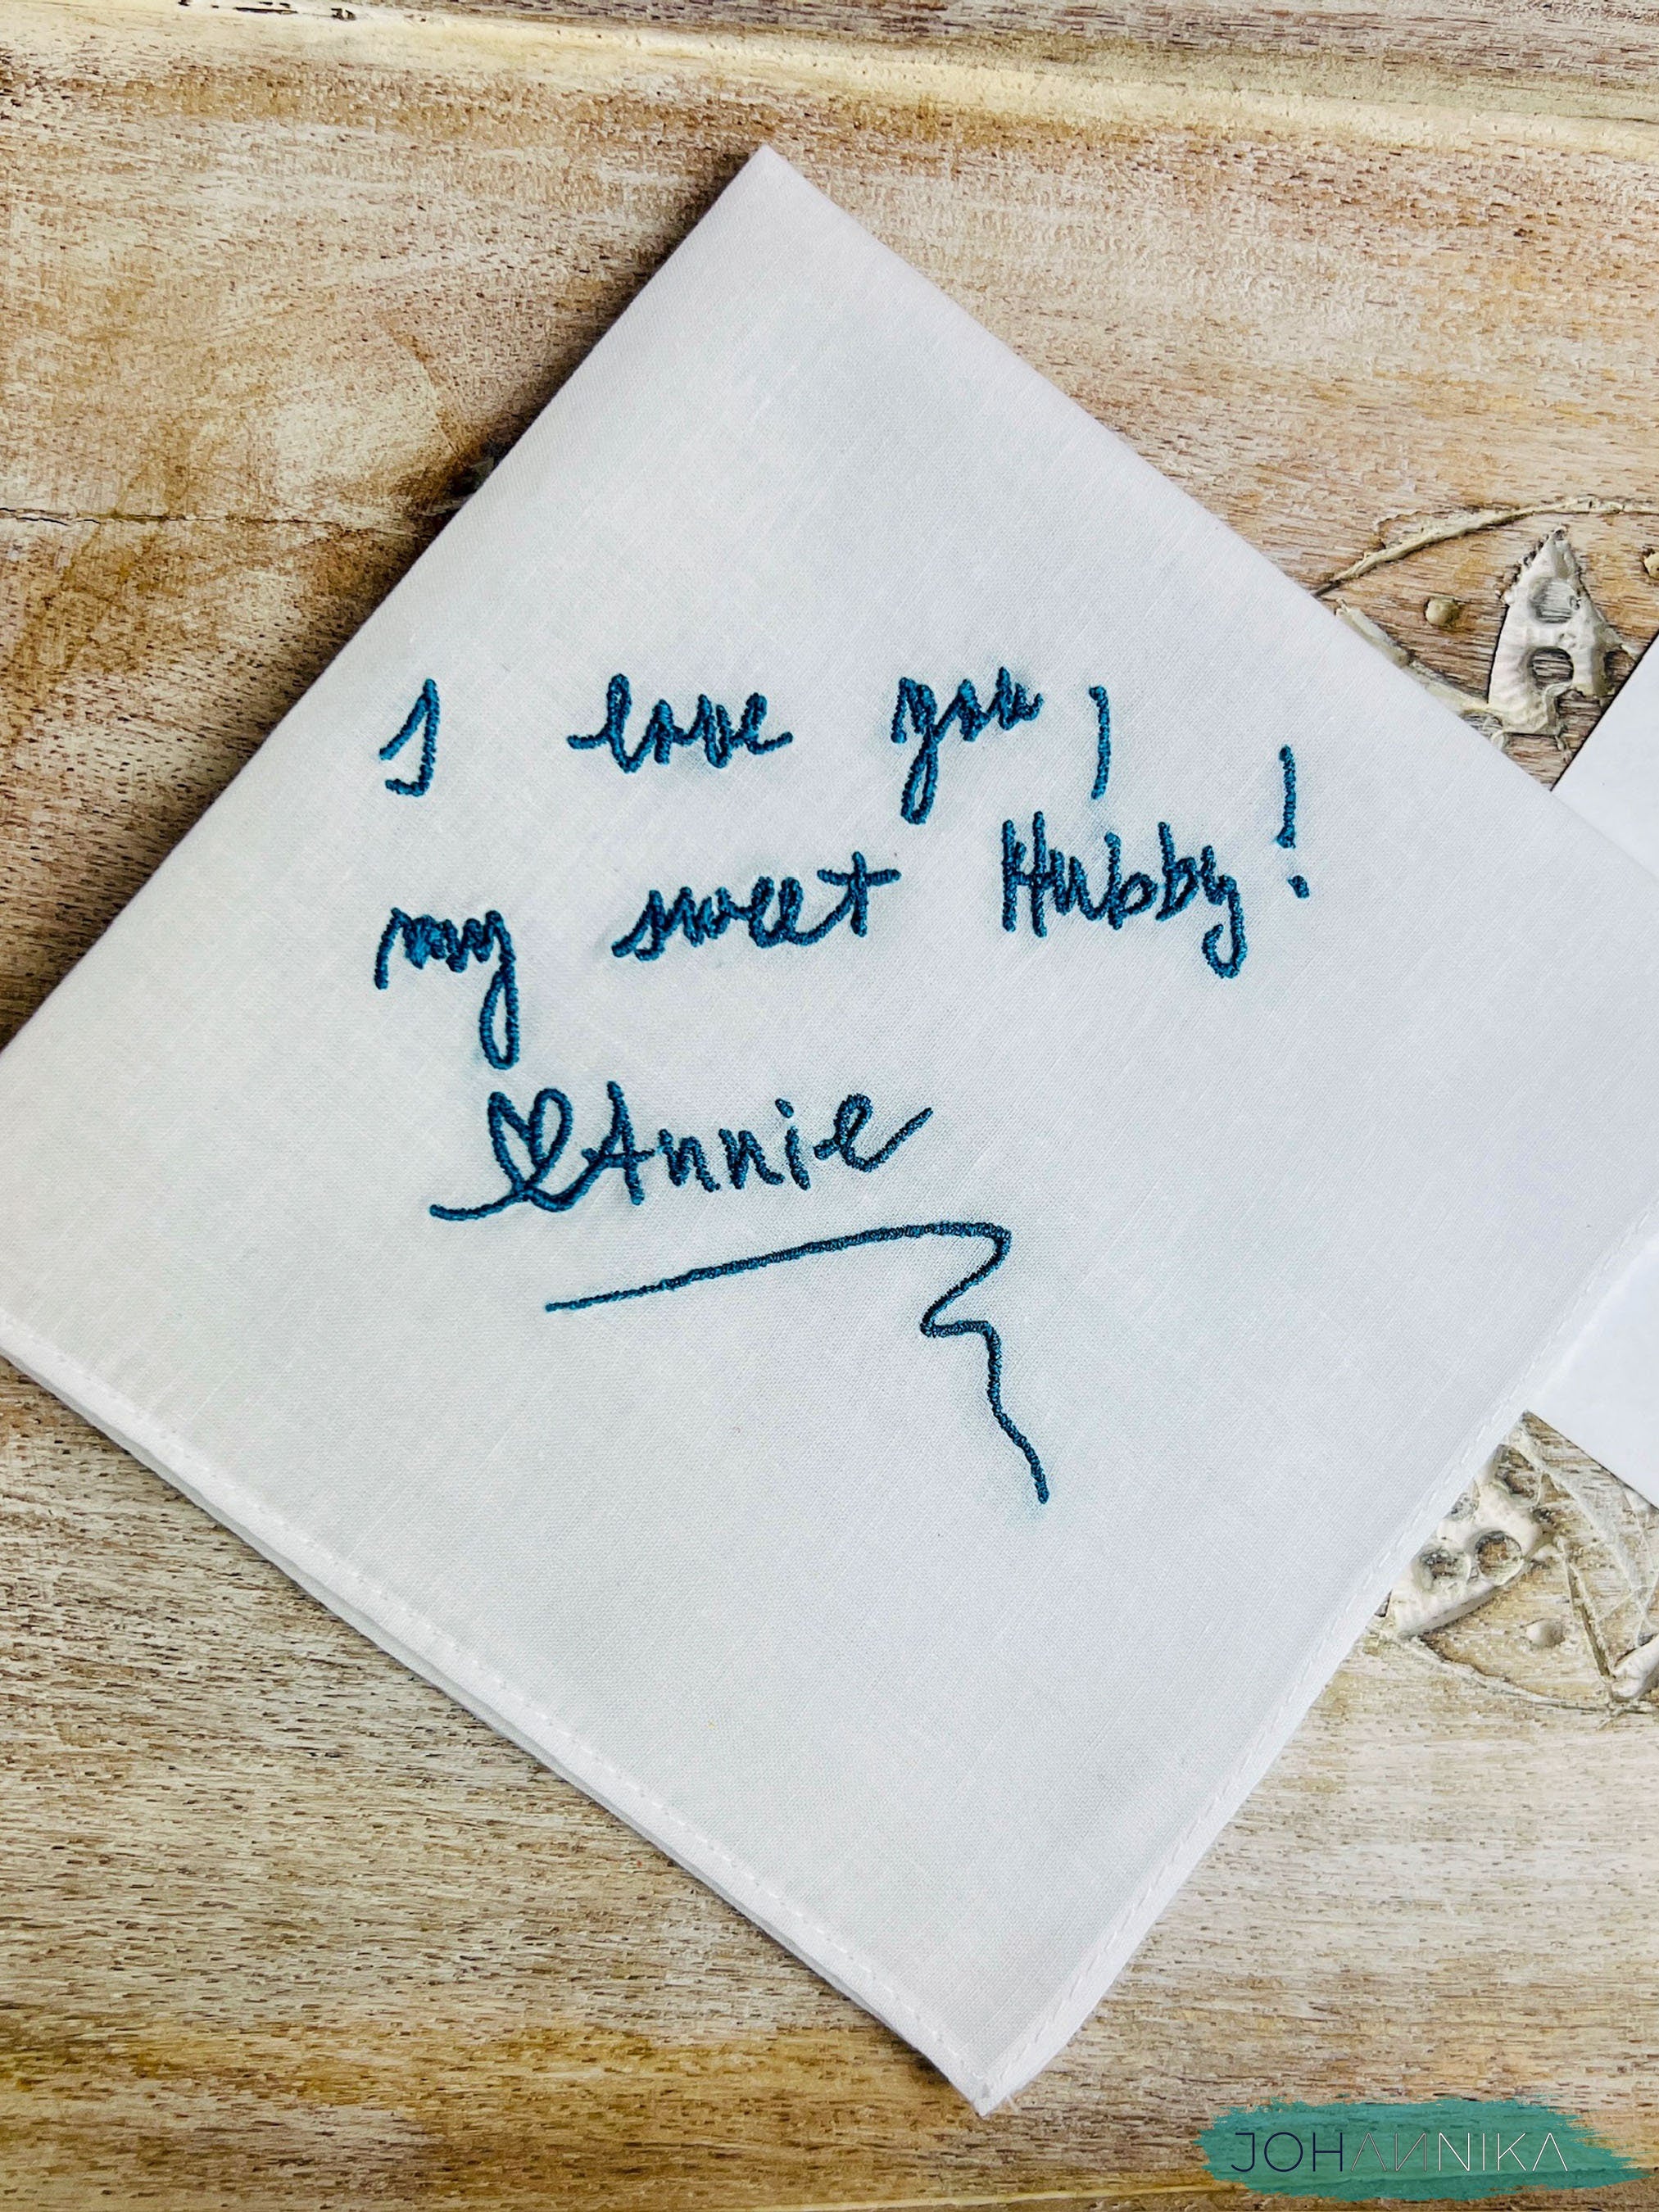 I love you,
my sweet Hubby!
Annie
JOHANNIKA